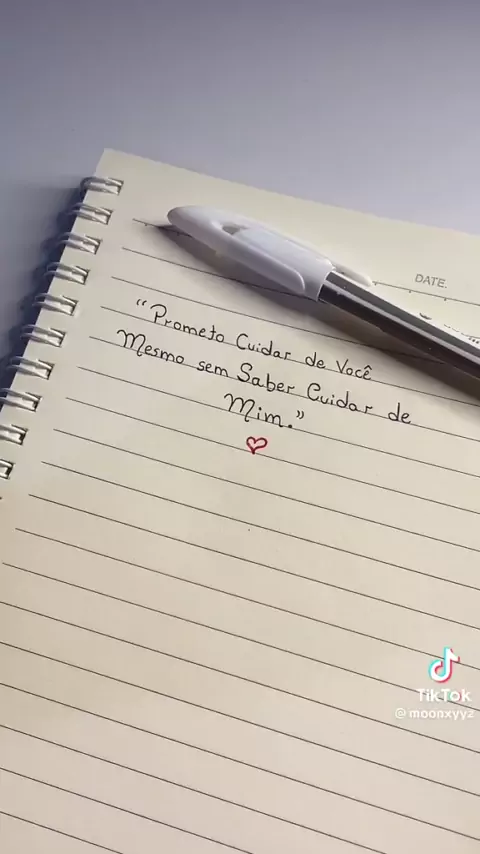 DATE.
"Prometo Cuidar de Você
Mesmo sem Saber Cuidar de
Mim."
TikTok
@moonxyyz